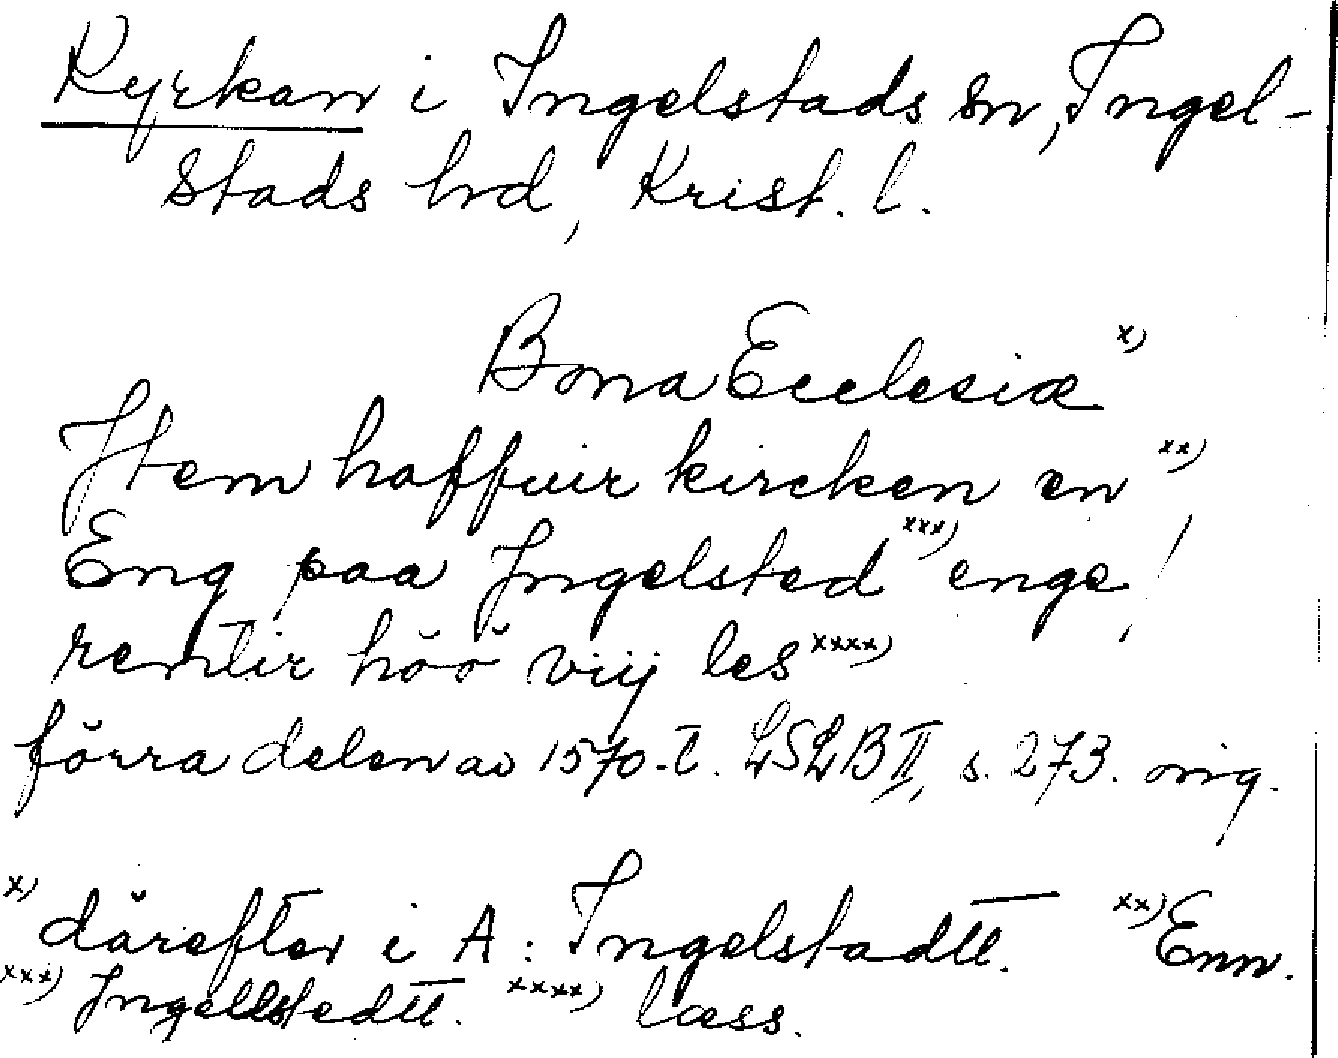 Kyrkan i Ingelstads sn, Ingel-
stads hd, Krist. l.
Bona Ecclesiæ x)
Jtem haffuir kircken en xx)
Eng paa Jngelsted xxx) enge /
rentir höö viij les xxxx)
förra delen av 1570-t. LSLB II, s. 273. orig.
x) därefter i A: Ingelstadtt. xx) Enn.
xxx) Jngellstedtt. xxxx) læss.